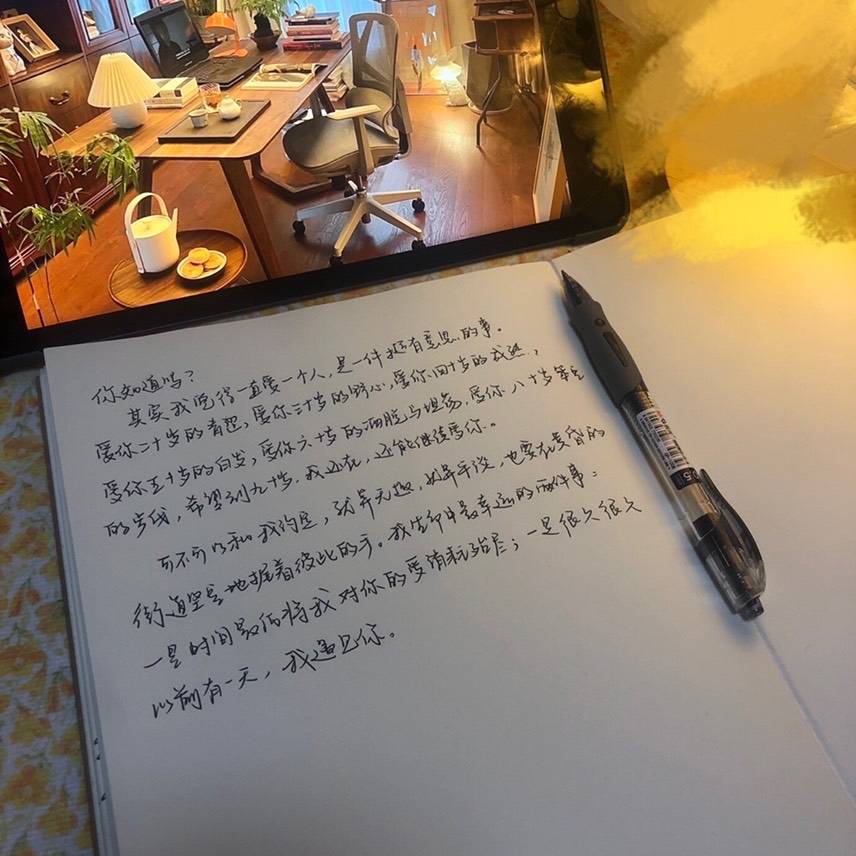 你知道吗?
其实我觉得一直爱一个人,是一件挺有意思的事。
爱你二十岁的青涩,爱你三十岁的野心,爱你四十岁的成熟,
爱你五十岁的白发,爱你六十岁的 与坦荡,爱你八十岁
的步伐,希望到九十岁,我还在,还能继续爱你。
可不可以和我约定,就算无趣,就算平淡,也要在黄昏的
街道坚定地握着彼此的手。我生命中最幸运的两件事:
一是时间 将我对你的爱消耗殆尽;一是很久很久
以前有一天,我遇见你。